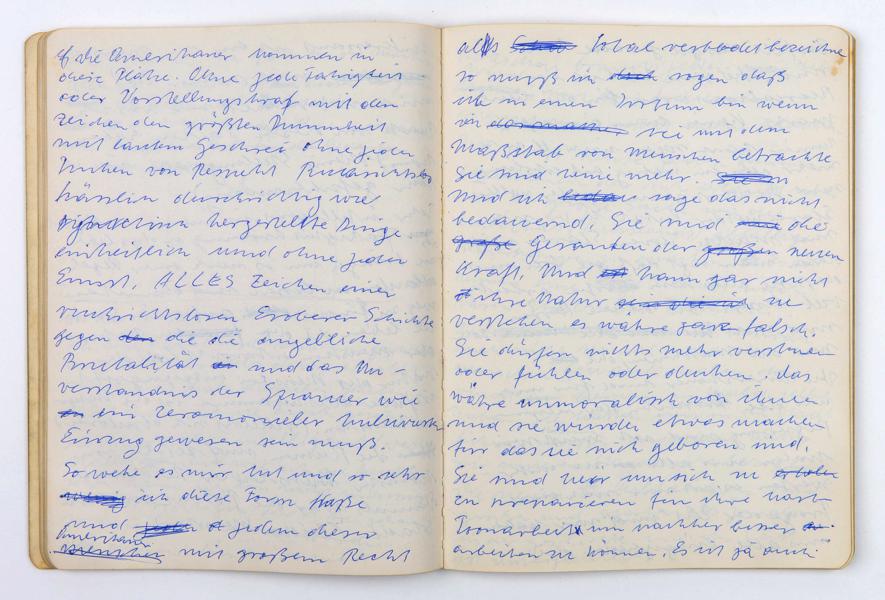 die Amerikaner kommen in
diese Plätze. Ohne jede Fähigkeit
oder Vorstellungskraf mit den
Zeichen der größten Dummheit
mit lautem Geschrei ohne jeden
Funken von Respekt Rücksichtslos
hässlich durchsichtig wie
hergestellte Dinge.
einheitlich und ohne jeden
Ernst, ALLES Zeichen einer
rücksichtslosen Eroberer Schichte
gegen die die angebliche
Brutalität und das Un-
verständnis der Spanier wie
ein zeremonieller
Einzug gewesen sein muß.
So wehe es mir tut und so sehr
ich diese Form haße
und jedem dieser
Amerikaner
mit großem Recht
als total verblödet bezeichne
so muß ich sagen daß
ich in einem Irrtum bin wenn
ich sie mit dem
Maßstab von Menschen betrachte
Sie sind keine mehr.
Und ich sage das nicht
bedauernd. Sie sind die
Gesandten der neuen
Kraft. Und kann gar nicht
ihre Natur zu
verstehen es währe ganz falsch.
Sie dürfen nichts mehr verstehen
oder fühlen oder denken. das
währe unmoralisch von ihnen
und sie würden etwas machen
für das sie nich geboren sind.
Sie sind hier um sich zu
zu preparieren für ihre
um nachher besser
arbeiten zu können. Es ist ja auch